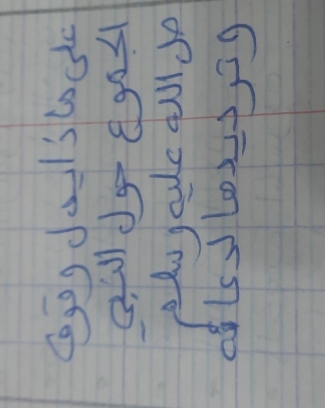 على ماذا يدل وقوف
الجموع حول النبي
صل الله عليه وسلم
وترديدها لدعائه